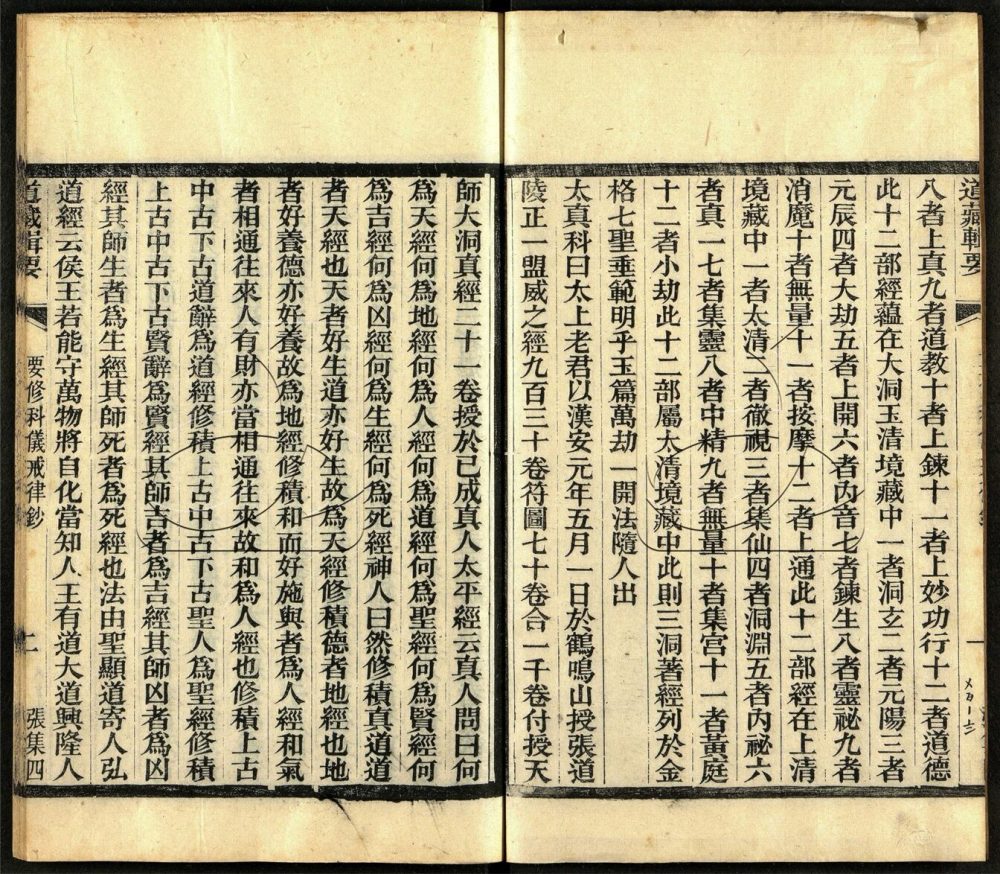 道藏輯要
八者上真九者道教十者上鍊十一者上妙功行十二者道德
此十二部經蘊在大洞玉清境藏中一者洞玄二者元陽三者
元辰四者大劫五者上開六者內音七者鍊生八者靈祕九者
消魔十者無量十一者按摩十二者上通此十二部經在上清
境藏中一者太清二者徹視三者集仙四者洞淵五者內祕六
者真一七者集靈八者中精九者無量十者集宮十一者黃庭
十二者小劫此十二部屬太清境藏中此則三洞著經列於金
格七聖垂範明乎玉篇萬劫一開法隨人出
太真科曰太上老君以漢安元年五月一日於鶴鳴山授張道
陵正一盟威之經九百三十卷符圖七十卷合一千卷付授天
師大洞真經二十一卷授於已成真人太平經云真人問曰何
為天經何為地經何為人經何為道經何為聖經何為賢經何
為吉經何為凶經何為生經何為死經神人曰然修積真道道
者天經也天者好生道亦好生故為天經修積德者地經也地
者好養德亦好養故為地經修積和而好施與者為人經和氣
者相通往來人有財亦當相通往來故和為人經也修積上古
中古下古道辭為道經修積上古中古下古聖人為聖經修積
上古中古下古賢辭為賢經其師吉者為吉經其師凶者為凶
經其師生者為生經其師死者為死經也法由聖顯道寄人弘
道經云侯王若能守萬物將自化當知人王有道大道興隆人
道藏輯要
要修科儀戒律鈔
二
張集四